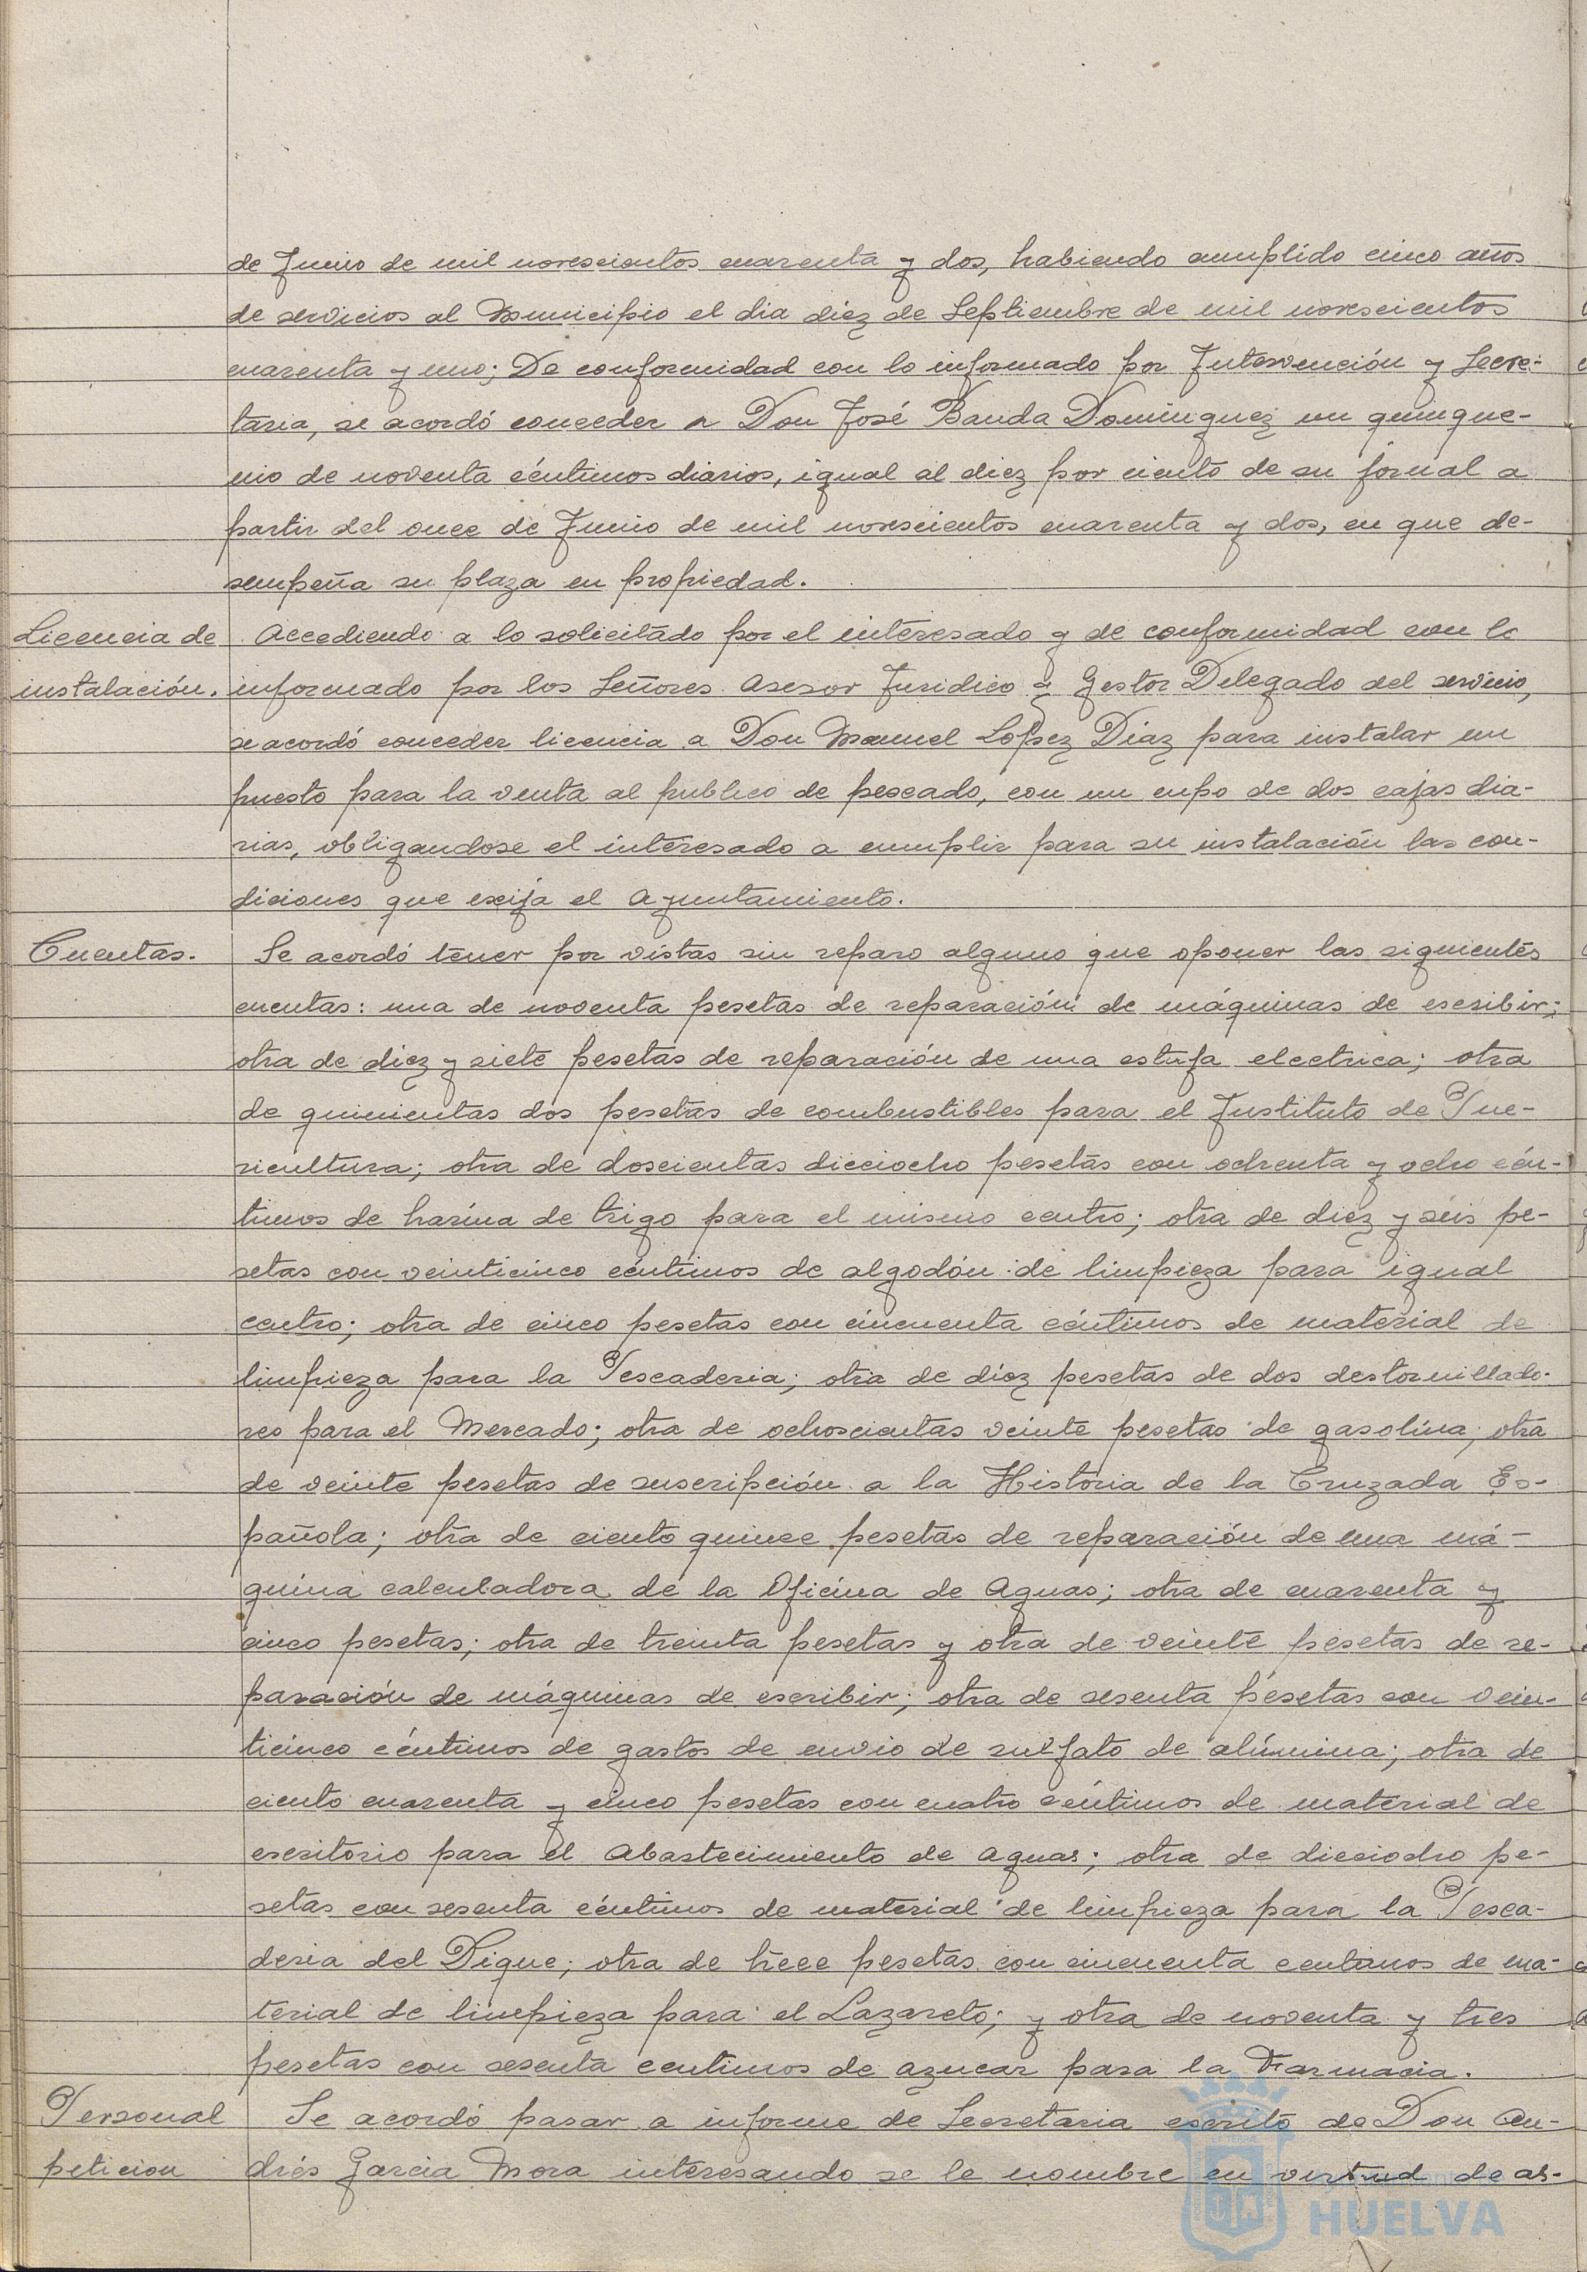 de Junio de mil novescientos cuarenta y dos, habiendo cumplido cinco años
de servicios al Municipio el dia diez de Septiembre de mil novescientos
cuarenta y uno; De conformidad con lo informado por Intervención y Secre-
taria, se acordó conceder a Don José Banda Dominguez un quinque-
nio de noventa céntimos diarios, igual al diez por ciento de su jornal a
partir del once de Junio de mil novescientos cuarenta y dos, en que de-
sempeña su plaza en propiedad.
Licencia de Accediendo a lo solicitado por el interesado y de conformidad con lo
instalación. informado por los Señores Asesor Juridico y Gestor Delegado del servicio,
se acordó conceder licencia a Don Manuel López Diaz para instalar un
puesto para la venta al publico de pescado, con un cupo de dos cajas dia-
rias, obligandose el interesado a cumplir para su instalación las con-
diciones que exija el Ayuntamiento.
Cuentas. Se acordó tener por vistas sin reparo alguno que oponer las siguientes
cuentas: una de noventa pesetas de reparación de máquinas de escribir;
otra de diez y siete pesetas de reparación de una estufa electrica; otra
de quinientas dos pesetas de combustibles para el Instituto de Pue-
ricultura; otra de doscientas dieciocho pesetas con ochenta y ocho cén-
timos de harina de trigo para el mismo centro; otra de diez y seis pe-
setas con veinticinco céntimos de algodón de limpieza para igual
centro; otra de cinco pesetas con cincuenta céntimos de material de
limpieza para la Pescaderia; otra de diez pesetas de dos destornillado-
res para el Mercado; otra de ochoscientas veinte pesetas de gasolina; otra
de veinte pesetas de suscripción a la Historia de la Cruzada Es-
pañola; otra de ciento quince pesetas de reparación de una má-
quina calculadora de la Oficina de Aguas; otra de cuarenta y
cinco pesetas; otra de treinta pesetas y otra de veinte pesetas de re-
paración de máquinas de escribir; otra de sesenta pesetas con vein-
ticinco céntimos de gastos de envio de sulfato de alúmina; otra de
ciento cuarenta y cinco pesetas con cuatro céntimos de material de
escritorio para el Abastecimiento de Aguas; otra de dieciocho pe-
setas con sesenta céntimos de material de limpieza para la Pesca-
deria del Dique; otra de trece pesetas con cincuenta centimos de ma-
terial de limpieza para el Lazareto; y otra de noventa y tres
pesetas con sesenta centimos de azucar para la Farmacia.
Personal Se acordó pasar a informe de Secretaria escrito de Don An-
peticion drés Garcia Mora interesando se le nombre en virtud de as-
HUELVA